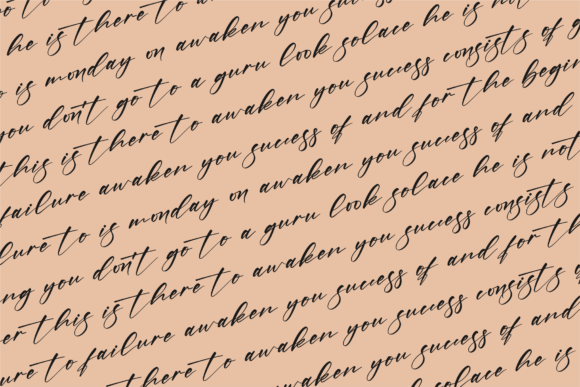 he is there to
is monday on awaken you success
you don't go to a guru look solace he is not
this is there to awaken you success consists of g
failure awaken you success of and for the begin
lure to is monday on awaken you success of and
ng you don't go to a guru look solace he is not
er this is there to awaken you success consists
ure to failure awaken you success of and for th
there to awaken you success consists
awaken you success of and
solace he is